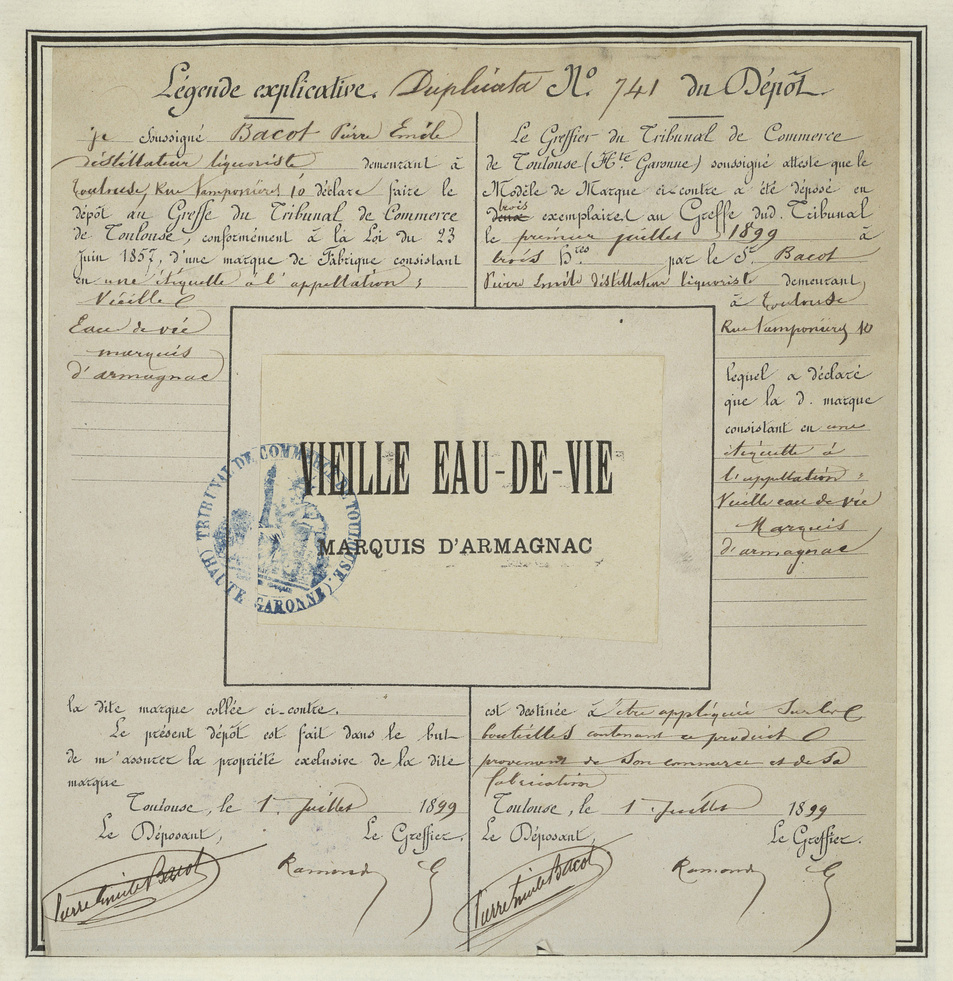 Légende explicative. Duplicata N° 741 du Dépôt.
je soussigné Bacot Pierre Emile
distillateur liquoriste demeurant à
Toulouse, Rue Tamponières 10 déclare faire le
dépôt au Greffe du Tribunal de Commerce
de Toulouse, conformément à la Loi du 23
Juin 1857, d'une marque de Fabrique consistant
en une étiquette à l'appellation :
Vieille
Eau de vie
marquis
d'armagnac
la dite marque collée ci-contre.
Le présent dépôt est fait dans le but
de m'assurer la propriété exclusive de la dite
marque
Toulouse, le 1 Juillet 1899
Le Déposant, Le Greffier.
Pierre Emile Bacot Ramond
Le Greffier du Tribunal de Commerce
de Toulouse (Hte Garonne) soussigné atteste que le
Modèle de Marque ci-contre a été déposé en
trois
deux exemplaires au Greffe dud. Tribunal
le premier juillet 1899 à
trois Hres par le Sr. Bacot
Pierre Emile distillateur liquoriste demeurant
à Toulouse
Rue Tamponières 10
lequel a déclaré
que la d. marque
consistant en une
étiquette à
l'appellation :
Vieille eau de vie
Marquis
d'armagnac
est destinée à être appliquée sur les
bouteilles contenant ce produit
provenant de son commerce et de sa
fabrication
Toulouse, le 1 Juillet 1899
Le Déposant, Le Greffier.
Pierre Emile Bacot Ramond
VIEILLE EAU-DE-VIE
MARQUIS D'ARMAGNAC
TRIBUNAL DE COMMERCE DE TOULOUSE.
(HAUTE GARONNE)